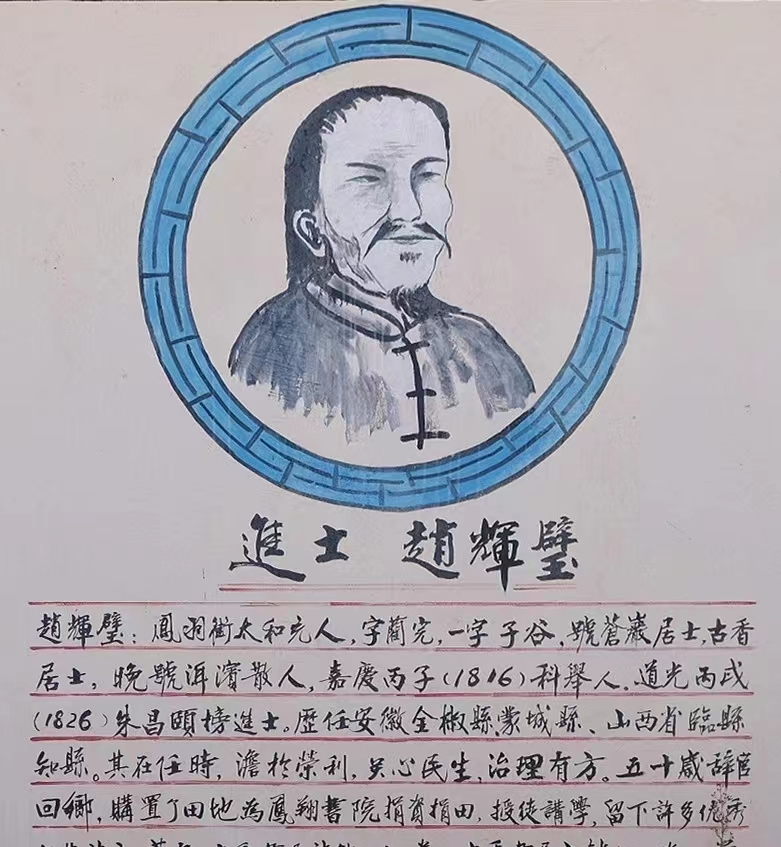 進士 趙輝璧
趙輝璧：鳳羽街太和充人，字藺完，一字子谷，號蒼巖居士，古香
居士，晚號洱濱散人，嘉慶丙子(1816)科舉人，道光丙戌
(1826)朱昌頤榜進士。歷任安徽全椒縣、蒙城縣、山西省臨縣
知縣。其在任時，澹於榮利，关心民生，治理有方。五十歲辞官
回鄉，購置了田地為鳳翔書院捐資捐田，授徒講學，留下許多优秀